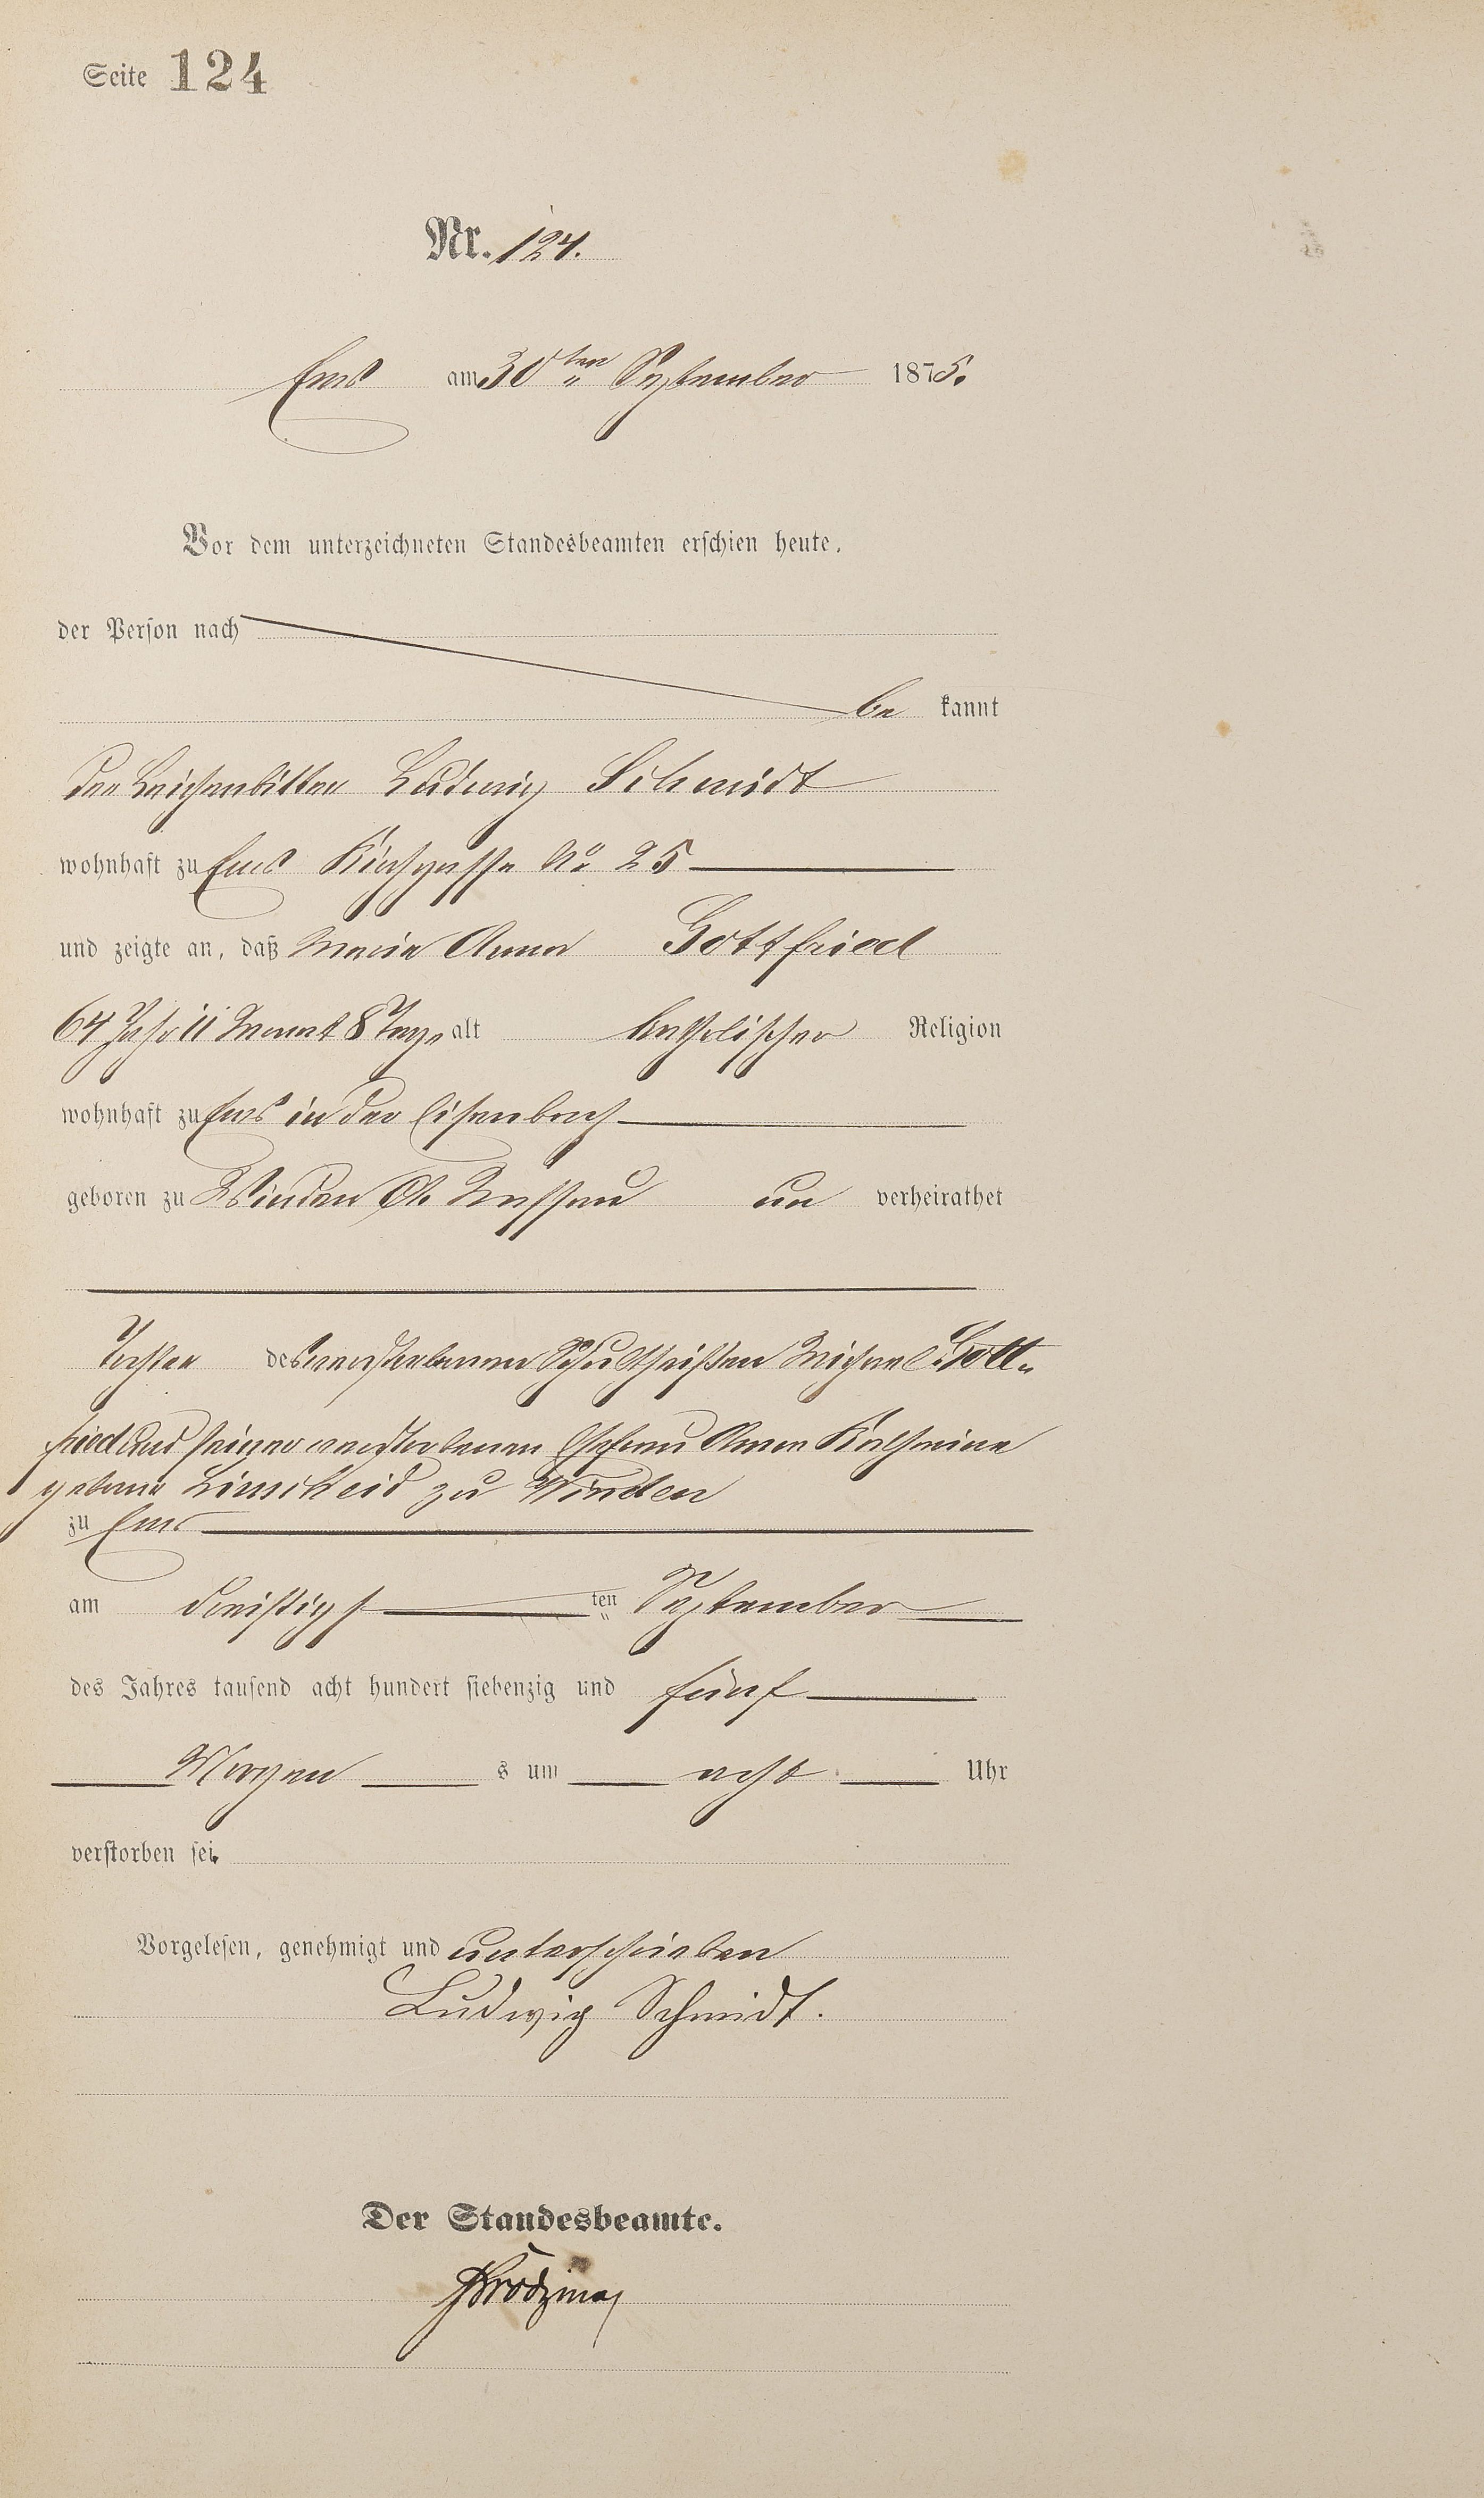 Seite 124
Nr. 124.
Ems am 30ten September 1875.
Vor dem unterzeichneten Standesbeamten erschien heute,
der Person nach
be kannt
der Leichenbitter Ludwig Schmidt
wohnhaft zu Ems Kirchgasse No 25
und zeigte an, daß Maria Anna Gottfried
64 Jahr 11 Monat 8 Tage alt katholischer Religion
wohnhaft zu Ems in der Eisenbach
geboren zu Winden A. Nassau un verheirathet
Tochter des verstorbenen Schultheißen Michael Gott-
fried und seiner verstorbenen Ehefrau Anna Katharina
geborne Linscheid zu Winden
zu Ems
am dreißigs ten September
des Jahres tausend acht hundert siebenzig und fünf
Morgen s um acht Uhr
verstorben sei.
Vorgelesen, genehmigt und unterschrieben
Ludwig Schmidt.
Der Standesbeamte.